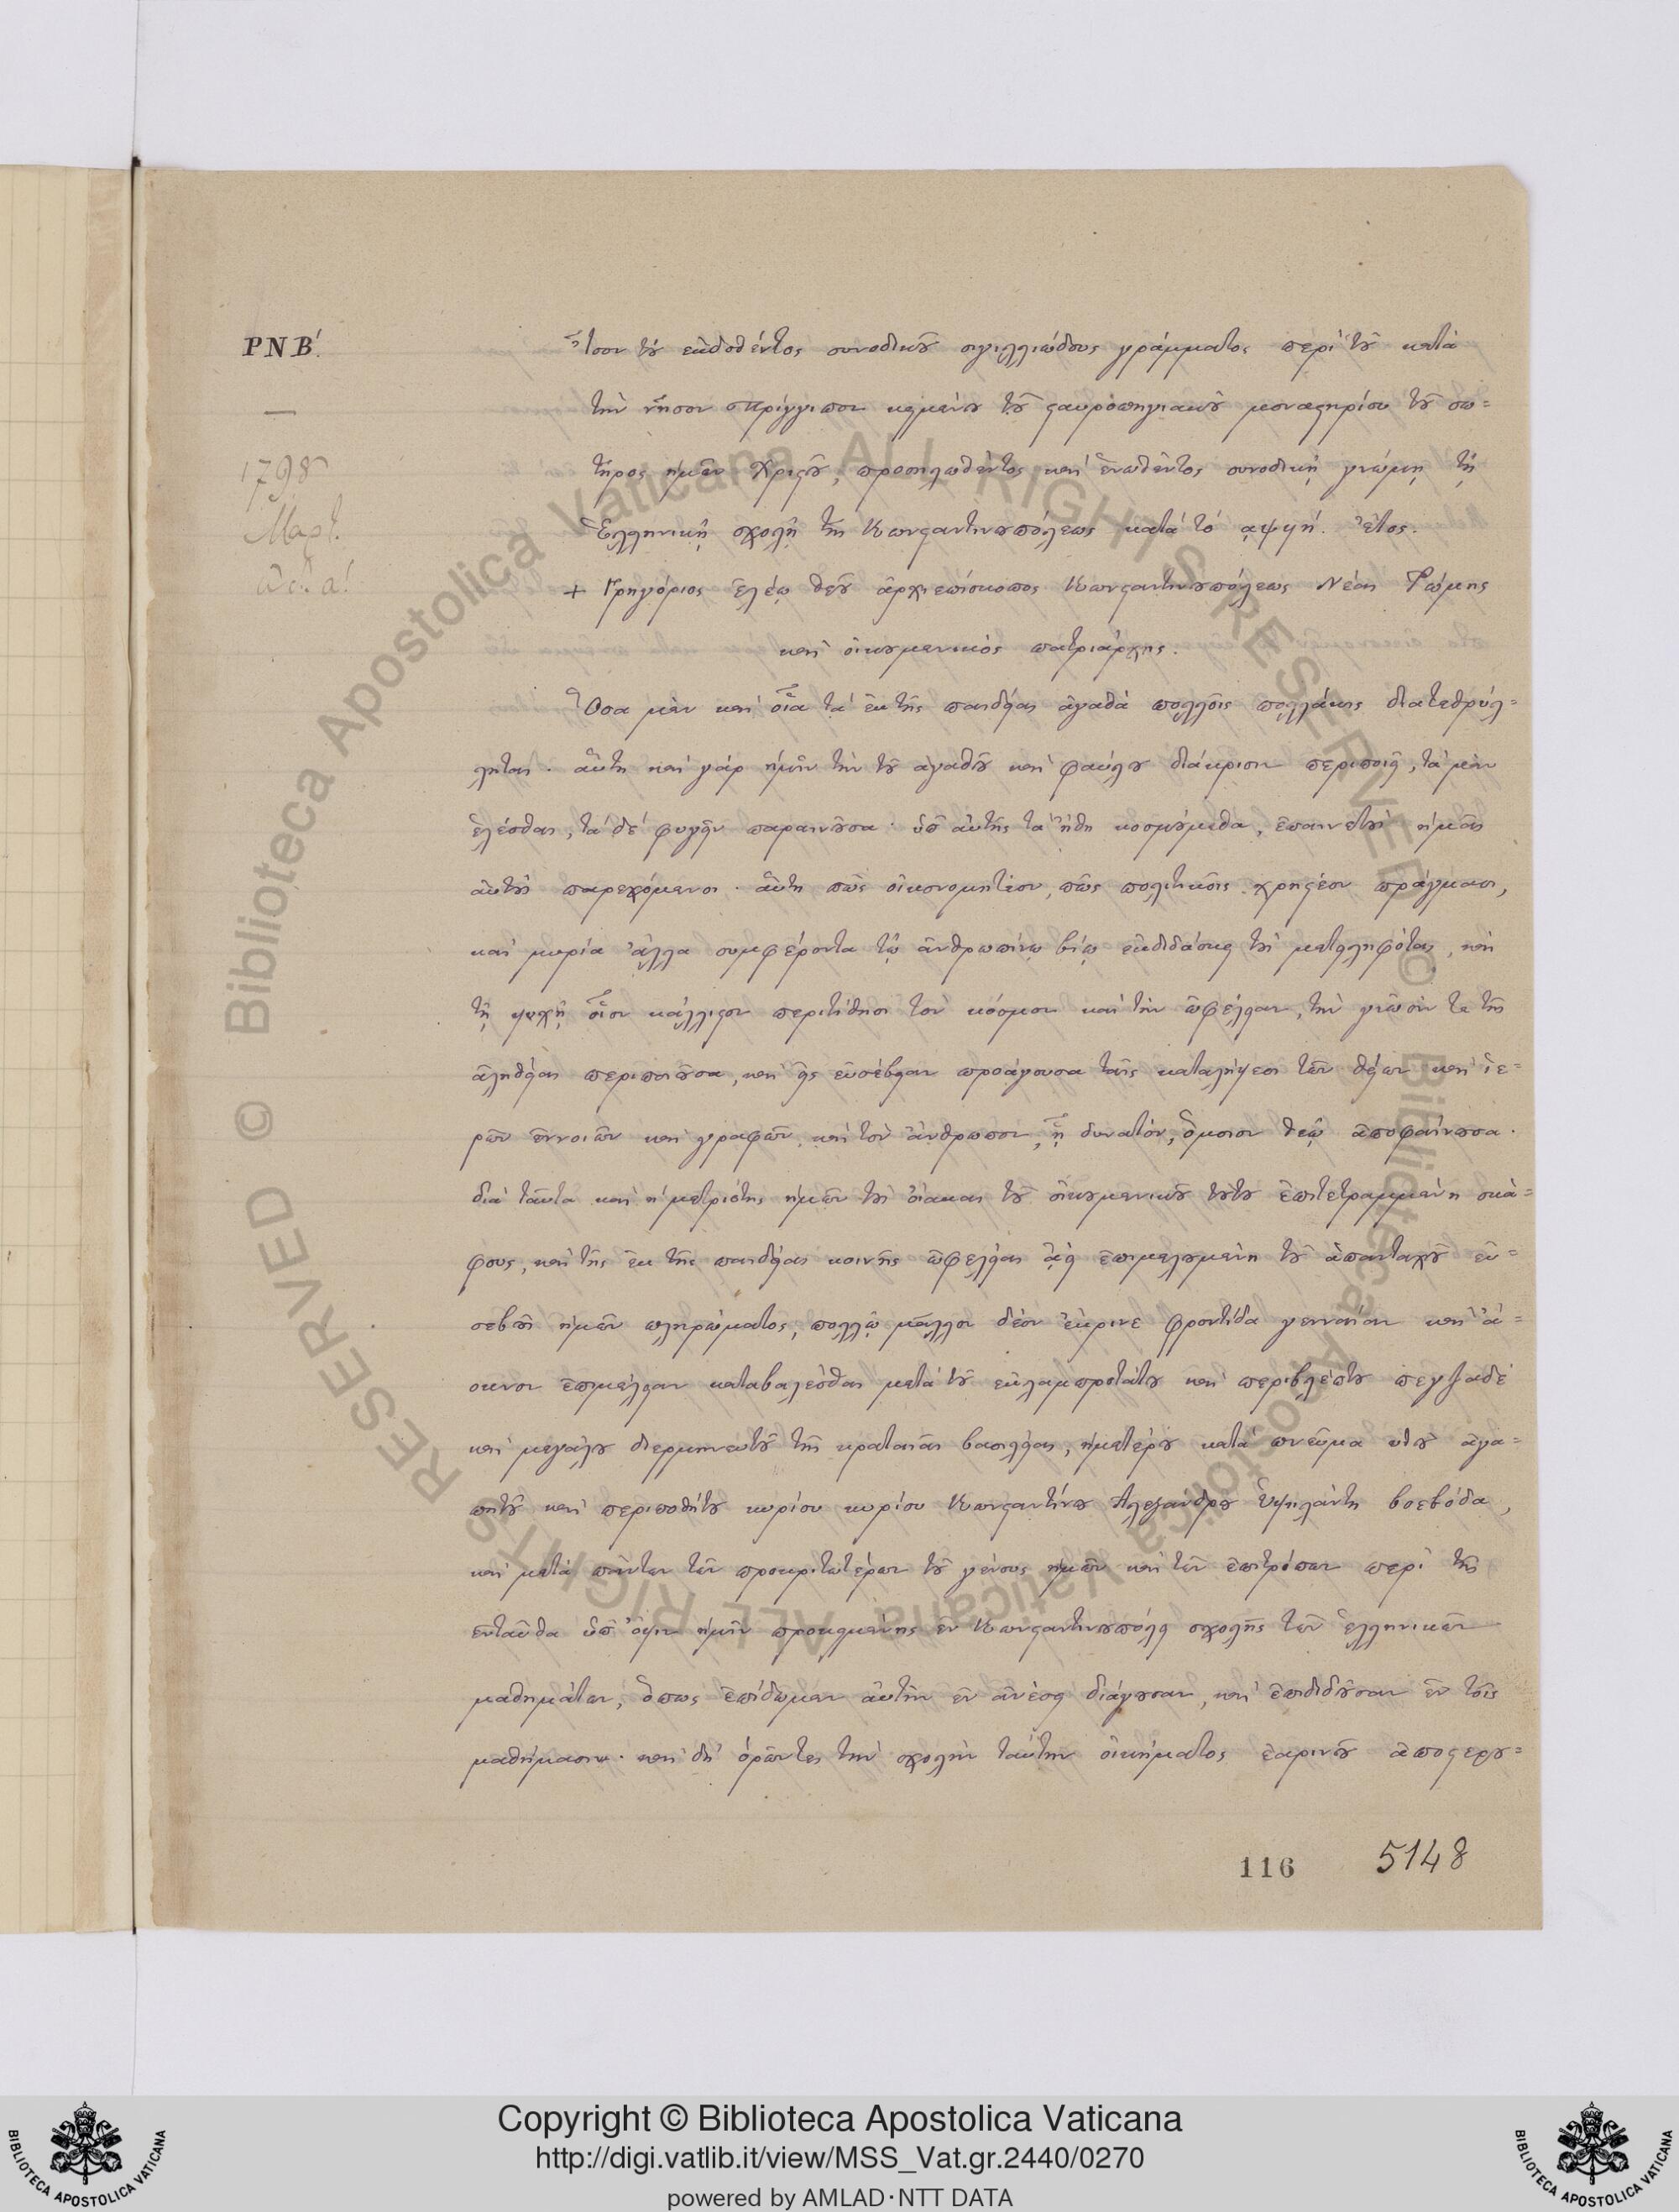 ΡΝΒ΄.
—
1798
Μαρτ.
Ἴσον τοῦ ἐκδοθέντος συνοδικοῦ σιγιλλιώδους γράμματος περὶ τοῦ κατὰ
τὴν νῆσον Πρίγγιπον κειμένου τοῦ σταυροπηγιακοῦ μοναστηρίου τοῦ σω=
τῆρος ἡμῶν Χριστοῦ, προσηλωθέντος καὶ ἑνωθέντος συνοδικῇ γνώμῃ τῇ
Ἑλληνικῇ σχολῇ τῆς Κωνσταντινουπόλεως κατὰ τὸ αψϟη΄. ἔτος.
+ Γρηγόριος ἐλέῳ θεοῦ ἀρχιεπίσκοπος Κωνσταντινουπόλεως Νέας Ῥώμης
καὶ οἰκουμενικὸς πατριάρχης.
Ὅσα μὲν καὶ οἷα τὰ ἐκ τῆς παιδείας ἀγαθὰ πολλοῖς πολλάκις διατεθρύλ=
ληται. αὕτη καὶ γὰρ ἡμῖν τὴν τοῦ ἀγαθοῦ καὶ φαύλου διάκρισιν περιποιεῖ, τὰ μὲν
ἑλέσθαι, τὰ δὲ φυγεῖν παραινοῦσα· ὑπ' αὐτῆς τὰ ἤθη κοσμούμεθα, ἐπαινετοὺς ἡμᾶς
αὐτοὺς παρεχόμενοι. αὕτη πῶς οἰκονομητέον, πῶς πολιτικοῖς χρηστέον πράγμασι,
καὶ μυρία ἄλλα συμφέροντα τῷ ἀνθρωπίνῳ βίῳ ἐκδιδάσκει τοὺς μετειληφότας, καὶ
τῇ ψυχῇ οἷον κάλλιστον περιτίθησι τὸν κόσμον καὶ τὴν ὠφέλειαν, τὴν γνῶσίν τε τῆς
ἀληθείας περιποιοῦσα, καὶ εἰς εὐσέβειαν προάγουσα ταῖς καταλήψεσι τῶν θείων καὶ ἱε=
ρῶν ἐννοιῶν καὶ γραφῶν, καὶ τὸν ἄνθρωπον, ᾗ δυνατόν, ὅμοιον θεῷ ἀποφαίνουσα.
διὰ ταῦτα καὶ ἡ μετριότης ἡμῶν τοὺς οἴακας τοῦ οἰκουμενικοῦ τούτου ἐπιτετραμμένη σκά=
φους, καὶ τῆς ἐκ τῆς παιδείας κοινῆς ὠφελείας ἀεὶ ἐπιμελουμένη τοῦ ἁπανταχοῦ εὐ=
σεβοῦς ἡμῶν πληρώματος, πολλῷ μᾶλλον δέον ἔκρινε φροντίδα γενναίαν καὶ ἄ=
οκνον ἐπιμέλειαν καταβαλέσθαι μετὰ τοῦ ἐκλαμπροτάτου καὶ περιβλέπτου πεγζαδὲ
καὶ μεγάλου διερμηνευτοῦ τῆς κραταιᾶς βασιλείας, ἡμετέρου κατὰ πνεῦμα υἱοῦ ἀγα=
πητοῦ καὶ περιποθήτου κυρίου κυρίου Κωνσταντίνου Ἀλεξάνδρου Ὑψηλάντη βοεβόδα,
καὶ μετὰ πάντων τῶν προκριτωτέρων τοῦ γένους ἡμῶν καὶ τῶν ἐπιτρόπων περὶ τῆς
ἐνταῦθα ὑπ' ὄψιν ἡμῖν προκειμένης ἐν Κωνσταντινουπόλει σχολῆς τῶν ἑλληνικῶν
μαθημάτων, ὅπως ἐπίδωμεν αὐτὴν ἐν ἀνέσει διάγουσαν, καὶ ἐπιδιδοῦσαν ἐν τοῖς
μαθήμασιν. καὶ δὴ ὁρῶντες τὴν σχολὴν ταύτην οἰκήματος ἐαρινοῦ ἀποστερου=
116
5148
© Biblioteca Apostolica Vaticana ALL RIGHTS RESERVED
© Biblioteca Apostolica Vaticana ALL RIGHTS RESERVED
BIBLIOTECA APOSTOLICA VATICANA
Copyright © Biblioteca Apostolica Vaticana
http://digi.vatlib.it/view/MSS_Vat.gr.2440/0270
powered by AMLAD・NTT DATA
BIBLIOTECA APOSTOLICA VATICANA